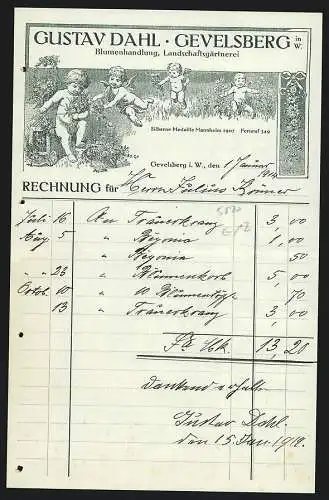 GUSTAV DAHL · GEVELSBERG in W.
Blumenhandlung, Landschaftsgärtnerei
Silberne Medaille Mannheim 1907 Fernruf 349
Gevelsberg i. W., den 1 Januar 1912
RECHNUNG für Herrn Julius
Juli 16 An Trauerkranz 3,00
Aug. 5 " Begonia 1,00
" Begonia 50
" 23 " Blumenkorb 5,00
Octob. 10 " Blumentopf 70
" 13 " Trauerkranz 3,00
Sa Mk. 13,20
Dankend erhalten
Gustav Dahl.
den 15. Jan. 1912.